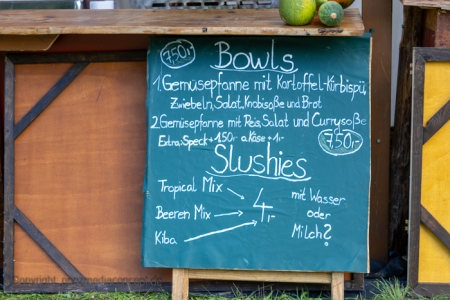 7,50,-
Bowls
1. Gemüsepfanne mit Kartoffel-Kürbispü,
Zwiebeln, Salat, Knobisoße und Brot
2. Gemüsepfanne mit Reis, Salat und Currysoße
Extra: Speck + 1,50 o. Käse + 1,-
7,50,-
Slushies
Tropical Mix
Beeren Mix
Kiba
4,-
mit Wasser
oder
Milch?